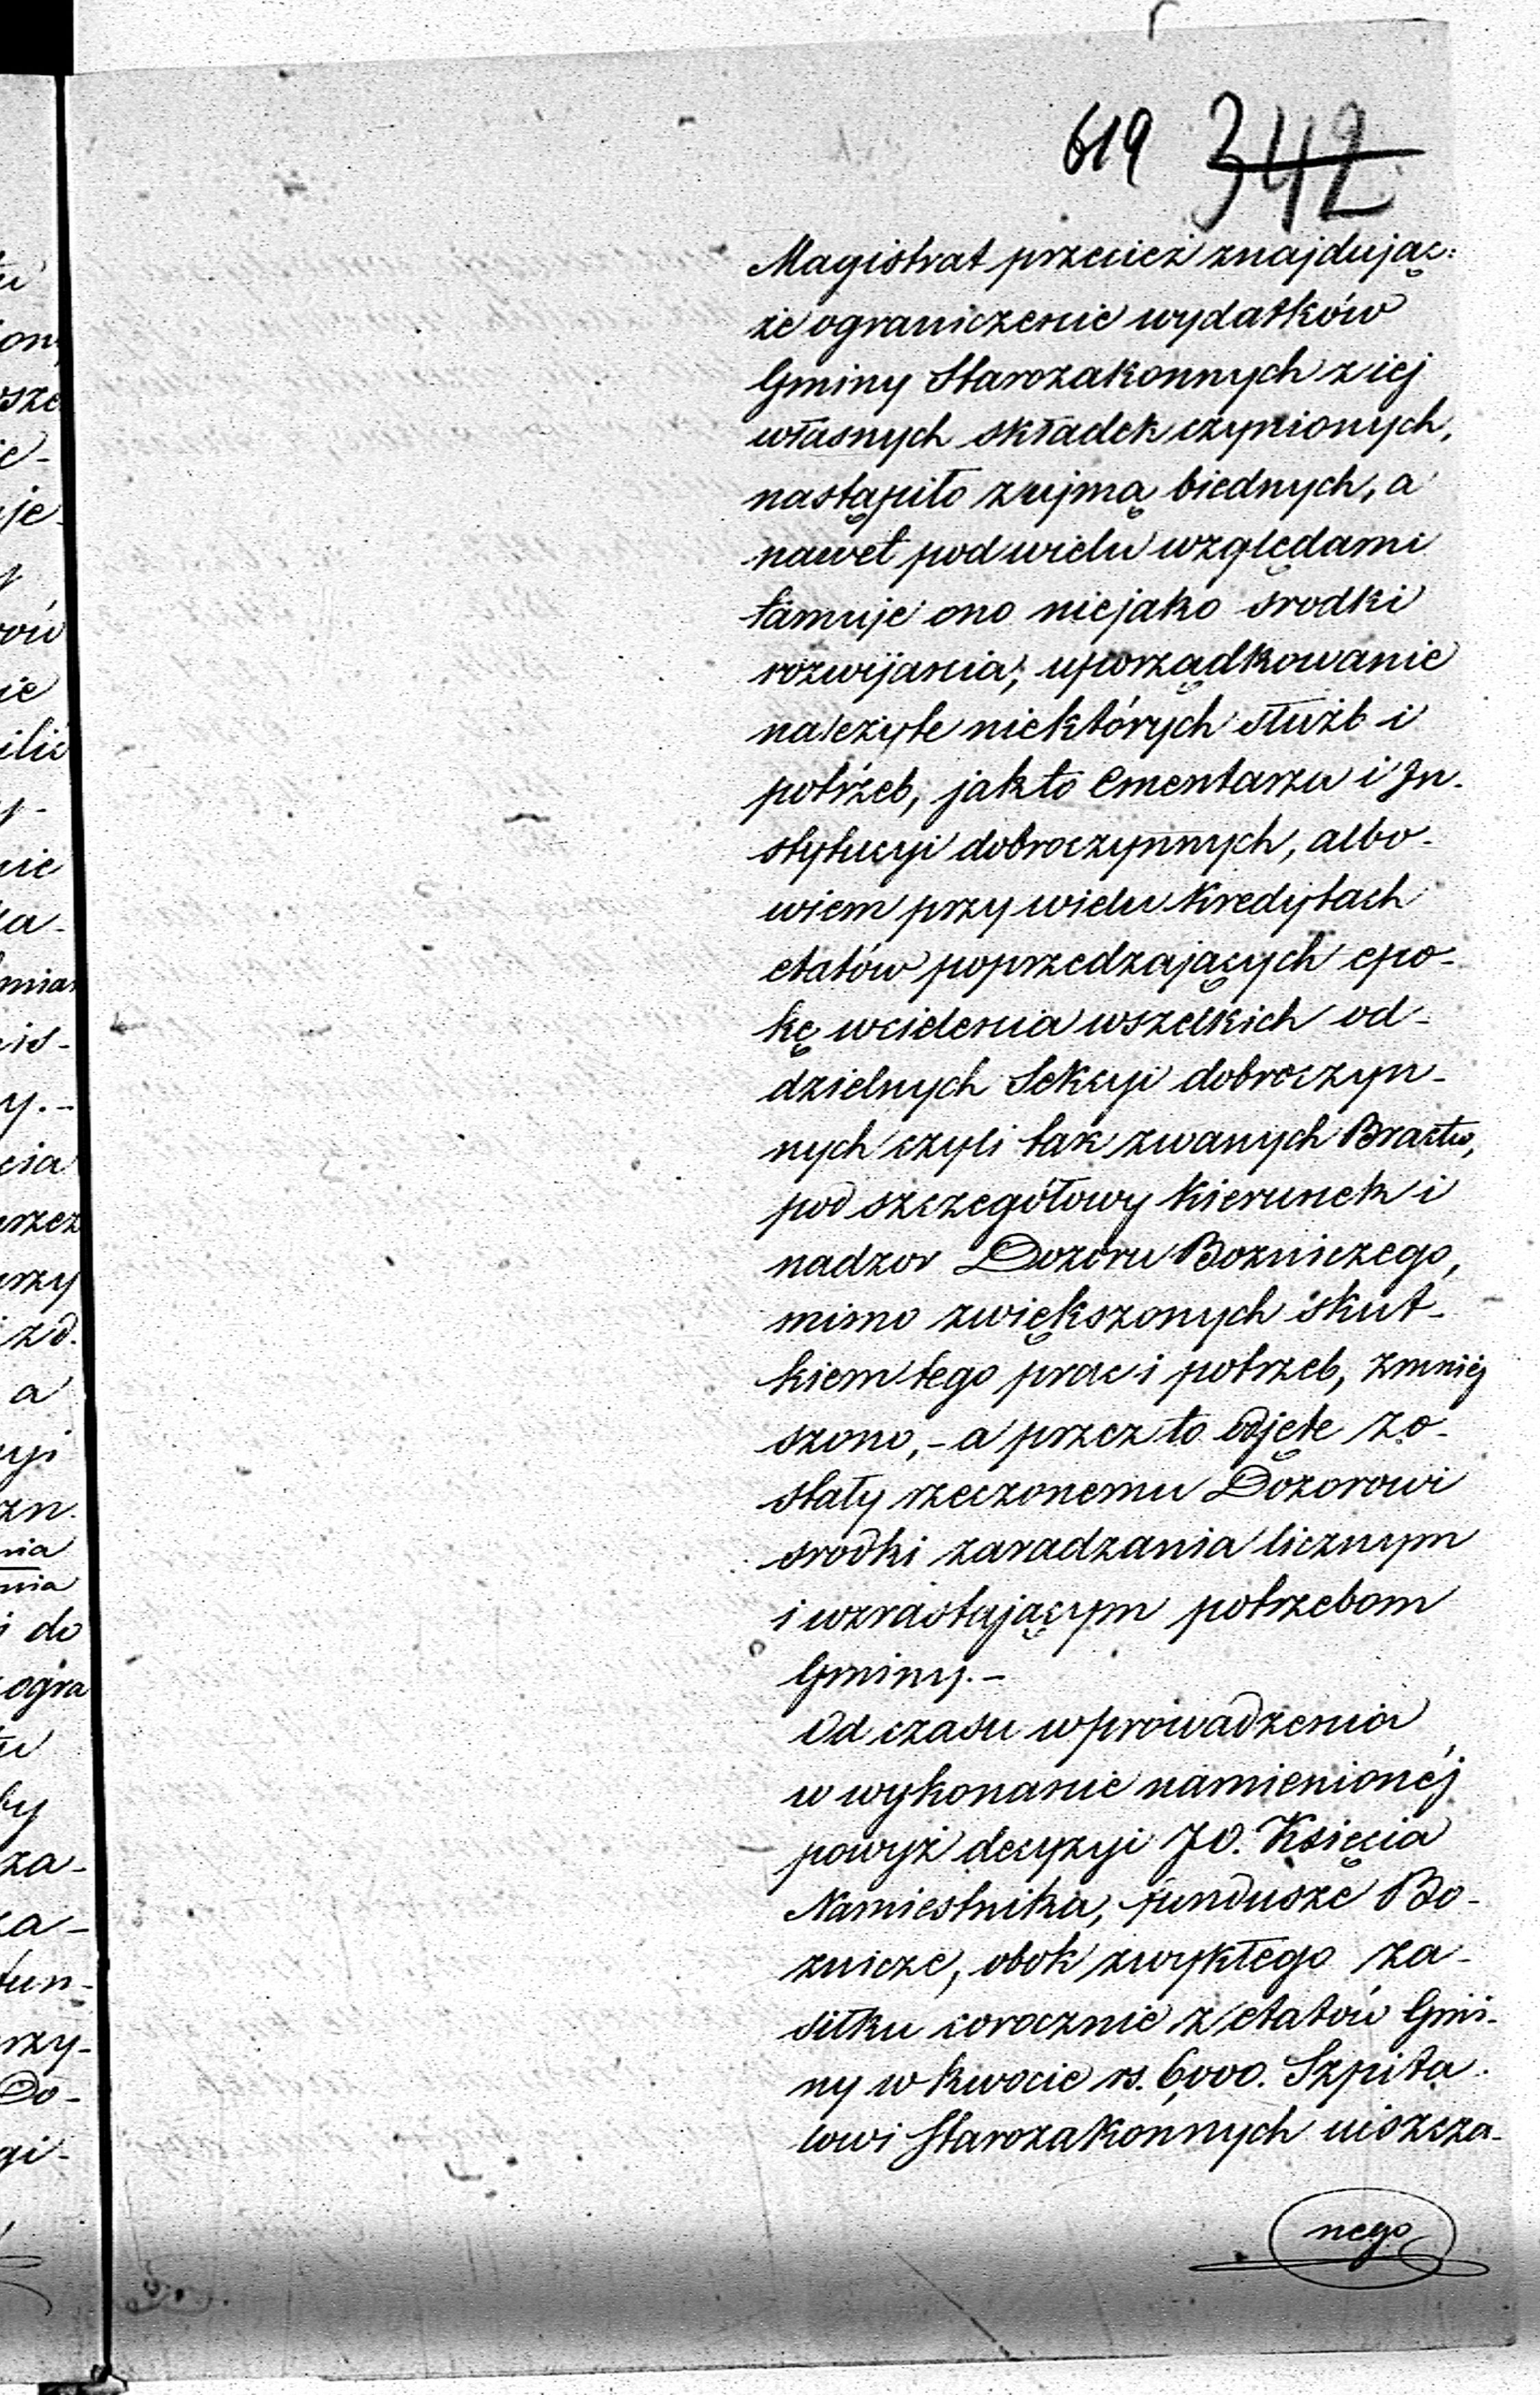 619 342
Magistrat przecież znajdując:
że ograniczenie wydatków
Gminy Starozakonnych z iej
własnych składek czynionych,
nastąpiło z ujmą biednych, a
nawet pod wielu względami
tamuje ono niejako środki
rozwijania; uporządkowanie
należyte niektórych służb i
potrzeb, jak to Cmentarza i In-
stytucyi dobroczynnych, albo-
wiem przy wielu Kredytach
etatów poprzedzających epo-
kę wcielenia wszelkich od-
dzielnych Sekcyi dobroczyn-
nych czyli tak zwanych Bractw,
pod szczegółowy Kierunek i
nadzor Dozoru Bozniczego,
mimo zwiększonych skut-
kiem tego prac i potrzeb, zmniej
szono, - a przez to odjęte zo-
stały rzeczonemu Dozorowi
srodki zaradzania licznym
i wzrastającym potrzebom
Gminy. -
Od czasu wprowadzenia
w wykonanie namienionéj
powyż decyzyi JO. Księcia
Namiestnika, fundusze Bo-
znicze, obok zwykłego za-
siłku corocznie z etatów Gmi-
ny w kwocie rs. 6,000. Szpita-
lowi Starozakonnych uiszcza-
nego